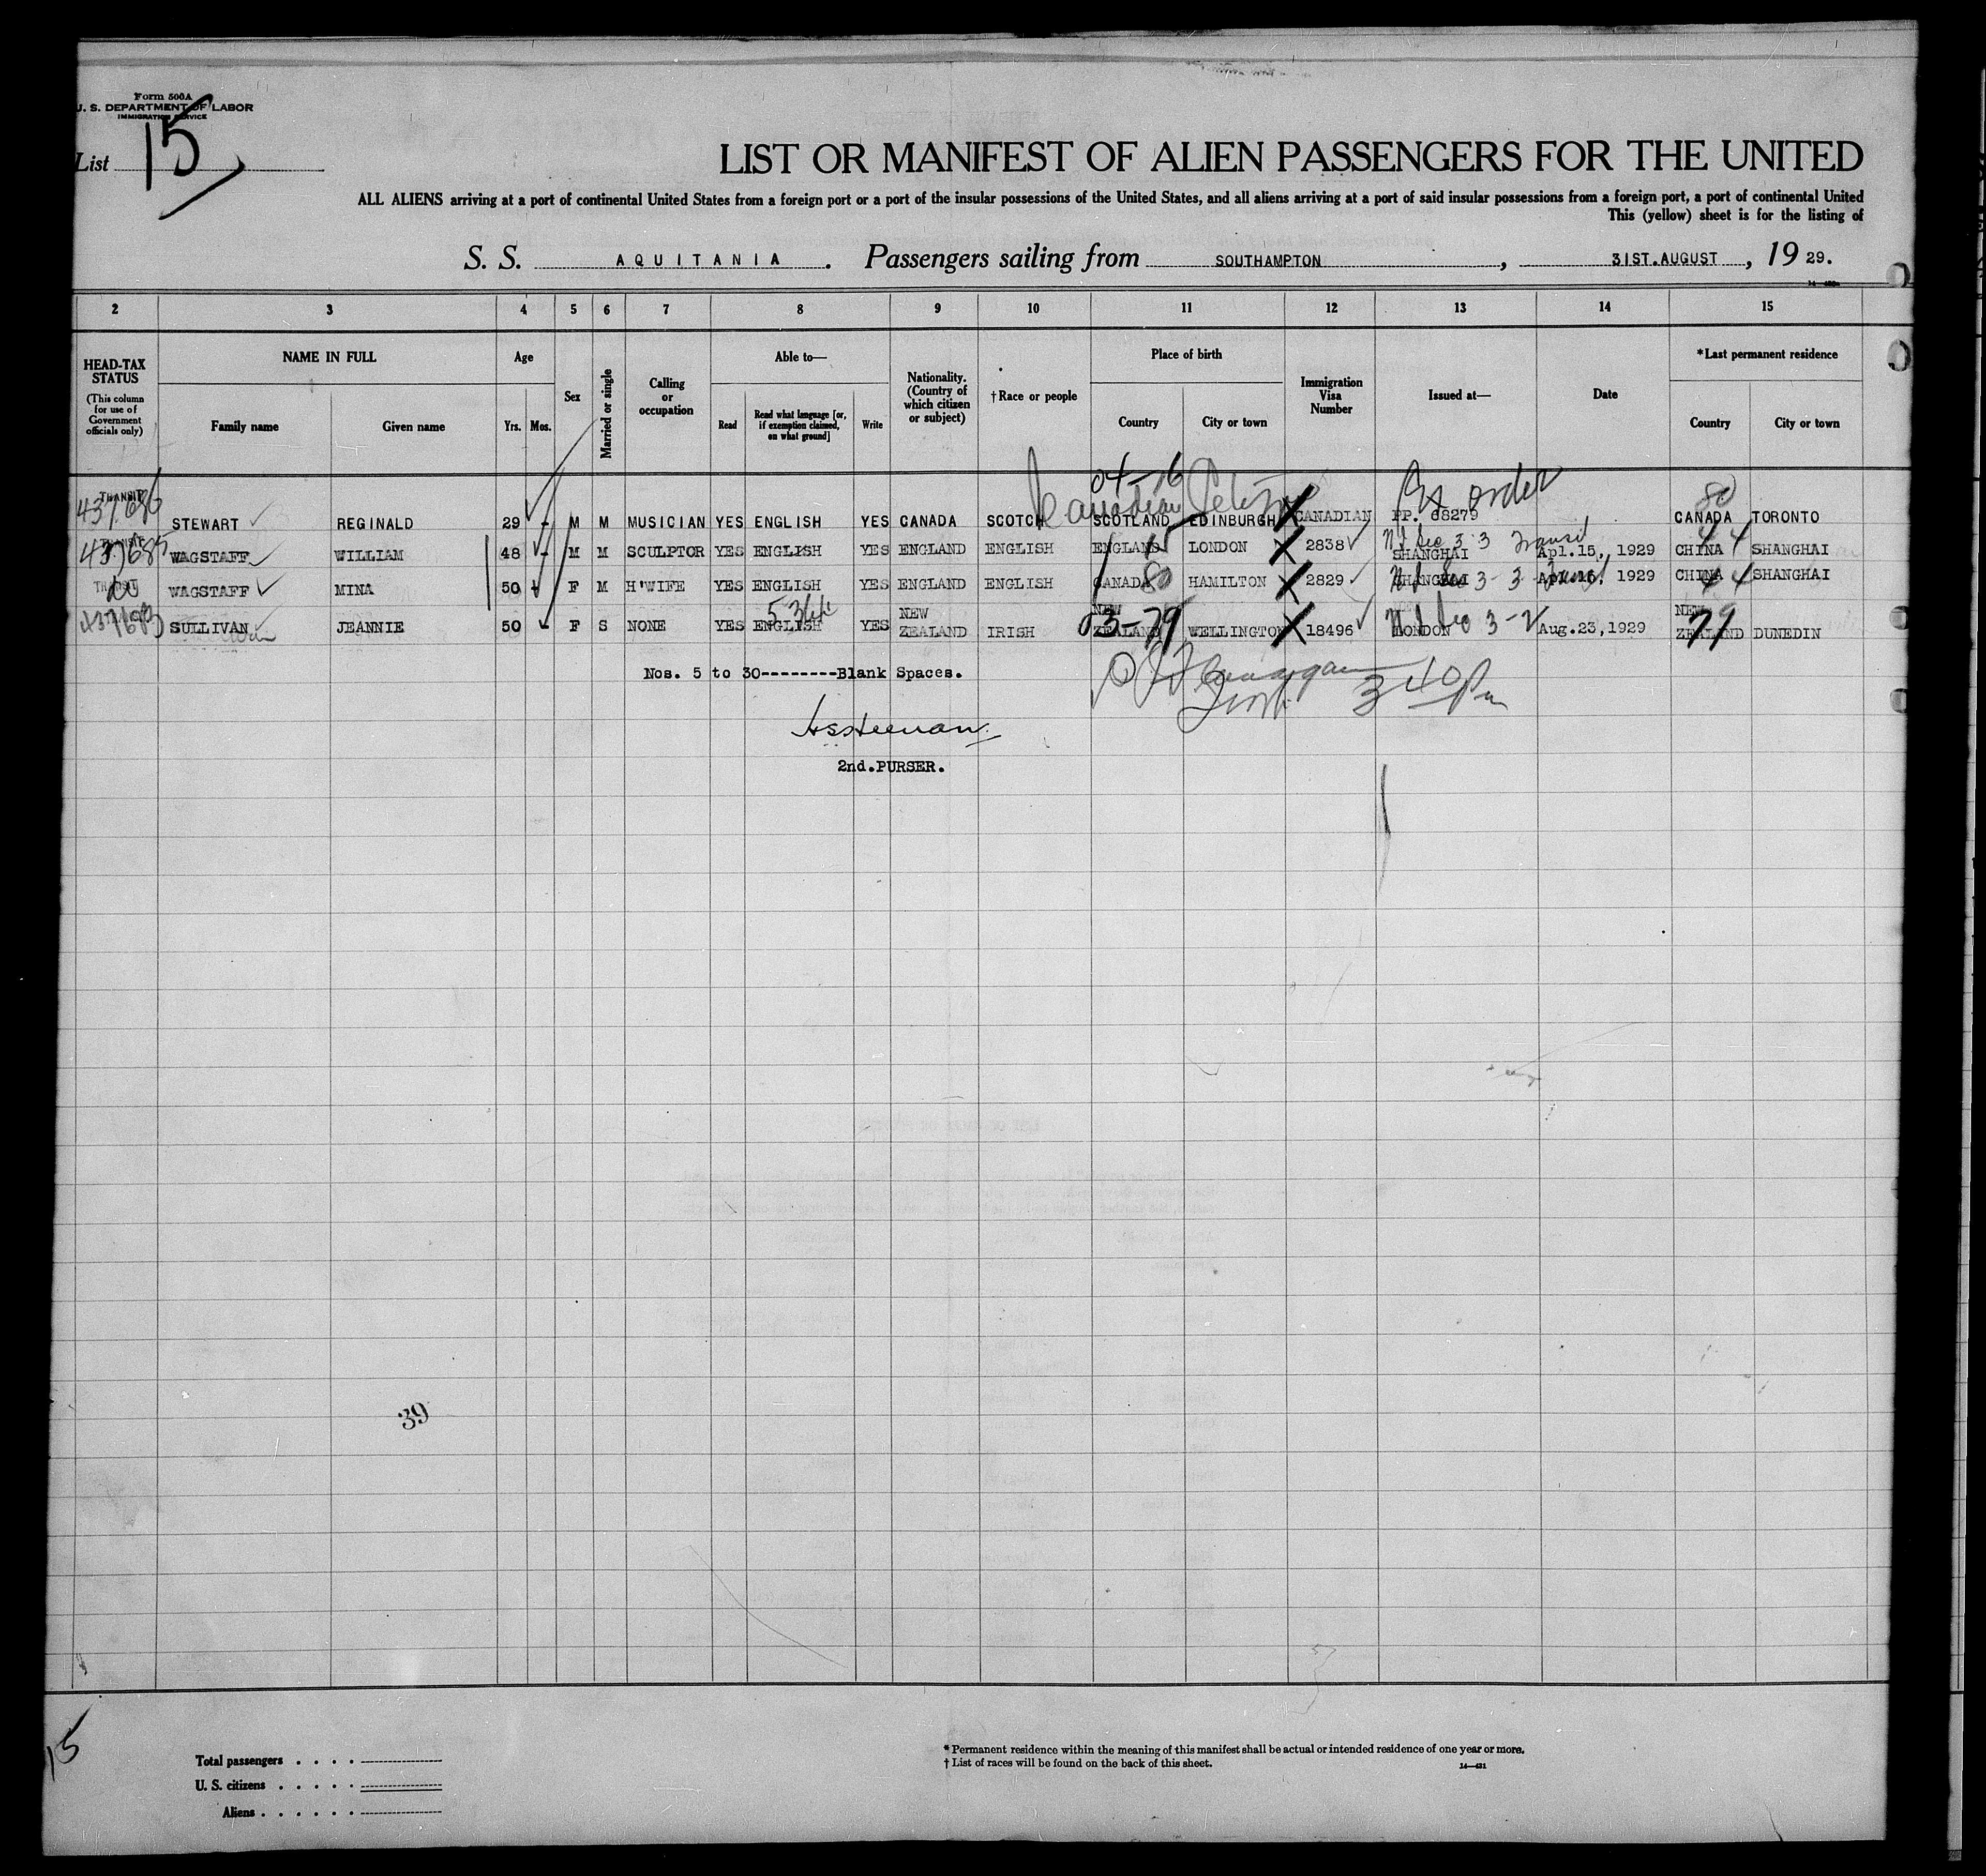 Form 500A
U. S. DEPARTMENT OF LABOR
IMMIGRATION SERVICE
List 15
LIST OR MANIFEST OF ALIEN PASSENGERS FOR THE UNITED
ALL ALIENS arriving at a port of continental United States from a foreign port or a port of the insular possessions of the United States, and all aliens arriving at a port of said insular possessions from a foreign port, a port of continental United
This (yellow) sheet is for the listing of
S. S. AQUITANIA. Passengers sailing from SOUTHAMPTON, 31ST.AUGUST, 19 29.
2 3 4 5 6 7 8 9 10 11 12 13 14 15
HEAD-TAX STATUS (This column for use of Government officials only)
NAME IN FULL
Family name Given name
Age
Yrs. Mos.
Sex
Married or single
Calling or occupation
Able to—
Read Read what language [or, if exemption claimed, on what ground] Write
Nationality. (Country of which citizen or subject)
† Race or people
Place of birth
Country City or town
Immigration Visa Number
Issued at—
Date
*Last permanent residence
Country City or town
04-16
Canadian
Ex order
80
TRANSIT 437686 STEWART REGINALD 29 - M M MUSICIAN YES ENGLISH YES CANADA SCOTCH SCOTLAND EDINBURGH CANADIAN PP. 68279 CANADA TORONTO
TRANSIT 437685 WAGSTAFF WILLIAM 48 - M M SCULPTOR YES ENGLISH YES ENGLAND ENGLISH ENGLAND 15 LONDON 2838 SHANGHAI 3-3 Transit Apl.15, 1929 CHINA 44 SHANGHAI
TRANSIT do WAGSTAFF MINA 50 F M H'WIFE YES ENGLISH YES ENGLAND ENGLISH CANADA 80 HAMILTON 2829 SHANGHAI 3-3 Apl.15, 1929 CHINA 44 SHANGHAI
437683 SULLIVAN JEANNIE 50 - F S NONE YES ENGLISH 5344 YES NEW ZEALAND IRISH NEW ZEALAND 03-79 WELLINGTON 18496 LONDON 3-2 Aug.23,1929 NEW ZEALAND 79 DUNEDIN
Nos. 5 to 30--------Blank Spaces.
3 40 Pm
2nd.PURSER.
39
15
Total passengers
U. S. citizens
Aliens
* Permanent residence within the meaning of this manifest shall be actual or intended residence of one year or more.
† List of races will be found on the back of this sheet.
14—421